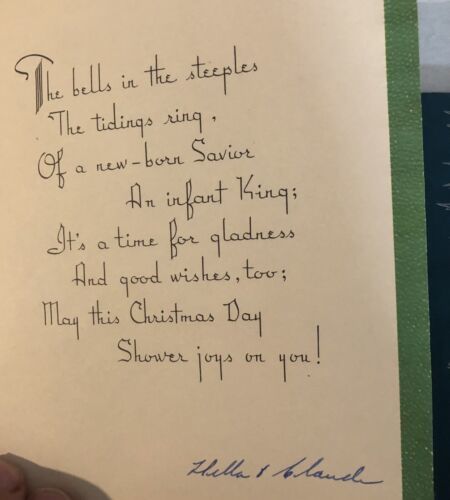 The bells in the steeples
The tidings ring,
Of a new-born Savior
An infant King;
It's a time for gladness
And good wishes, too;
May this Christmas Day
Shower joys on you!
& Claude